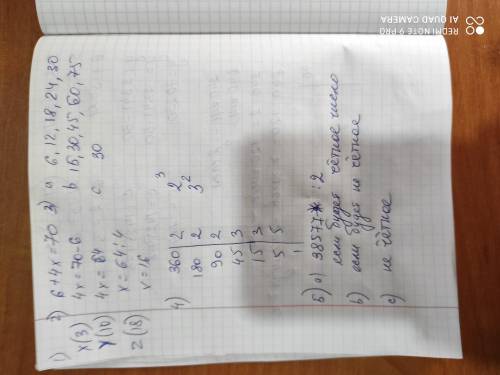 1)
x(3)
y(10)
z(18)
2) 6+4x=70
4x=70-6
4x=64
x=64:4
x=16
3) a) 6, 12, 18, 24, 30
b 15, 30, 45, 60, 75
c. 30
4)
360 | 2
180 | 2
90 | 2
45 | 3
15 | 3
5 | 5
1
2³
3²
5) a) 38577* : 2
если будет чётное число
b) если будет не чётное
c) не чётное
REDMI NOTE 9 PRO
AI QUAD CAMERA